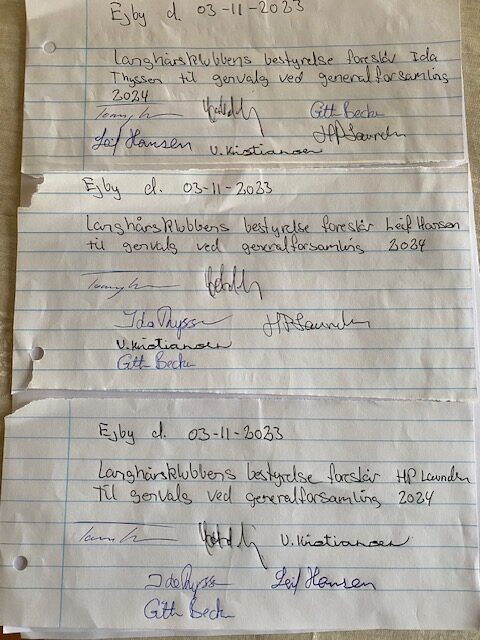 Ejby d. 03-11-2023
Langhårsklubbens bestyrelse foreslår Ida
Thyssen til genvalg ved generalforsamling
2024
Gitth Becker
Leif Hansen HP Launden
V. Kristiansen
Ejby d. 03-11-2023
Langhårsklubbens bestyrelse foreslår Leif Hansen
til genvalg ved generalforsamling 2024
Ida Thyssen HP Launden
V. Kristiansen
Gitth Becker
Ejby d. 03-11-2023
Langhårsklubbens bestyrelse foreslår HP Launden
til genvalg ved generalforsamling 2024
V. Kristiansen
Ida Thyssen Leif Hansen
Gitth Becker